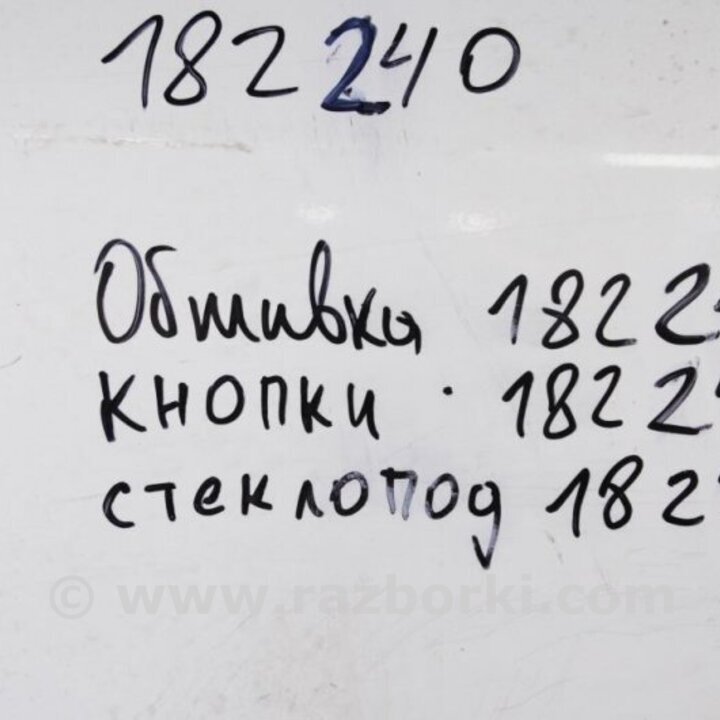 182240
Обшивка 1822
кнопки · 1822
стеклопод 182
© www.razborki.com